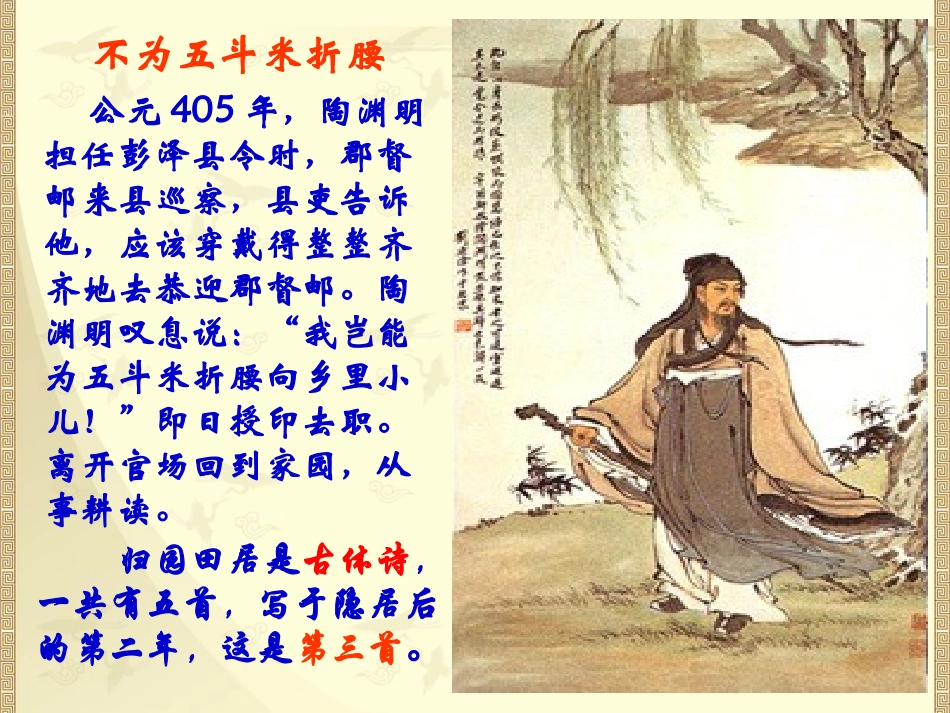 不为五斗米折腰
公元 405 年，陶渊明
担任彭泽县令时，郡督
邮来县巡察，县吏告诉
他，应该穿戴得整整齐
齐地去恭迎郡督邮。陶
渊明叹息说：“我岂能
为五斗米折腰向乡里小
儿！”即日授印去职。
离开官场回到家园，从
事耕读。
归园田居是古体诗，
一共有五首，写于隐居后
的第二年，这是第三首。